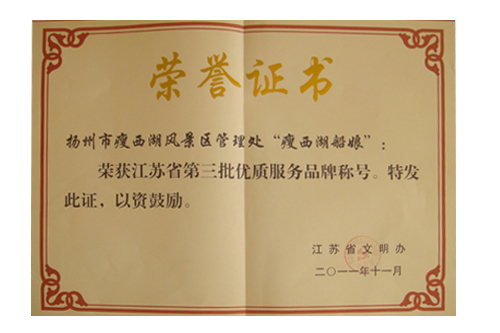 荣誉证书
扬州市瘦西湖风景区管理处“瘦西湖船娘”：
荣获江苏省第三批优质服务品牌称号。特发
此证，以资鼓励。
江苏省文明办
二〇一一年十一月